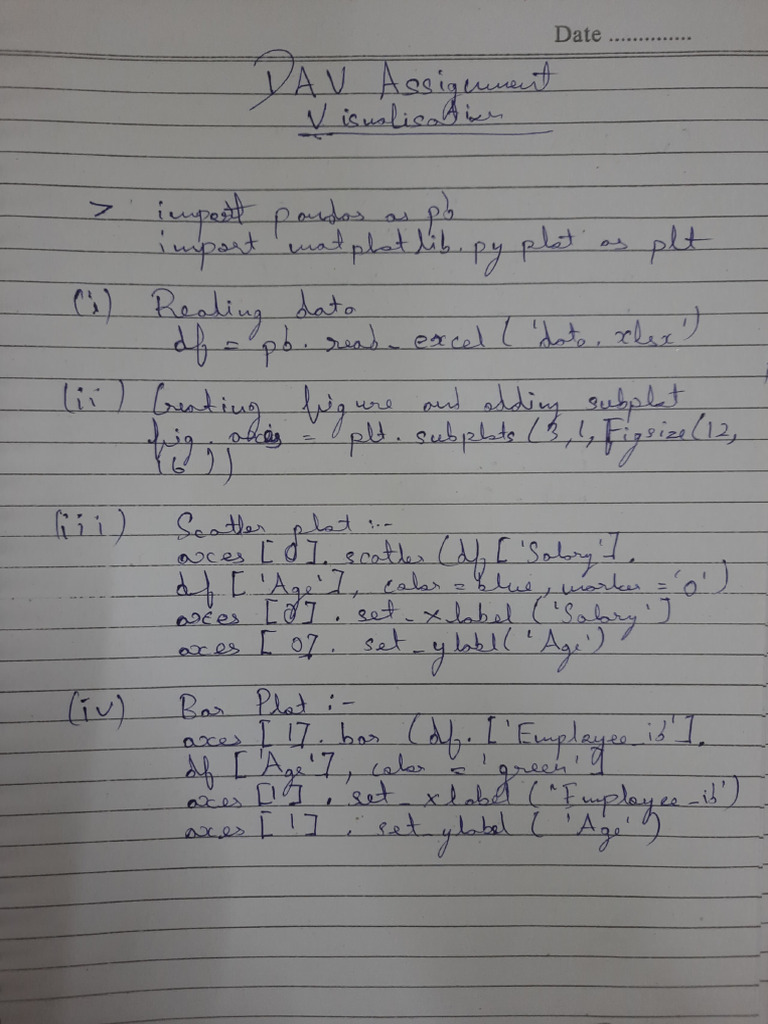 Date ..............
DAV Assignment
Visualisation
> import pandas as pb
import matplotlib.py plot as plt
(i) Reading data
df = pb. read_excel ( 'data. xlsx')
(ii) Creating figure and adding subplot
fig. axes = plt. subplots (3,1, Figsize(12,
16))
(iii) Scatter plot :-
axces [0]. scatter (df ['Salary'].
df ['Age'], color = blue, marker = 'o')
axces [0]. set_xlabel ('Salary']
axces [0]. set_ylabl('Age')
(iv) Bar Plot :-
axces [1]. bar (df. ['Employee_id'].
df ['Age'], color = 'green']
axces [1]. set_xlabel ("Employee_id')
axces [1]. set_ylabel ( 'Age')